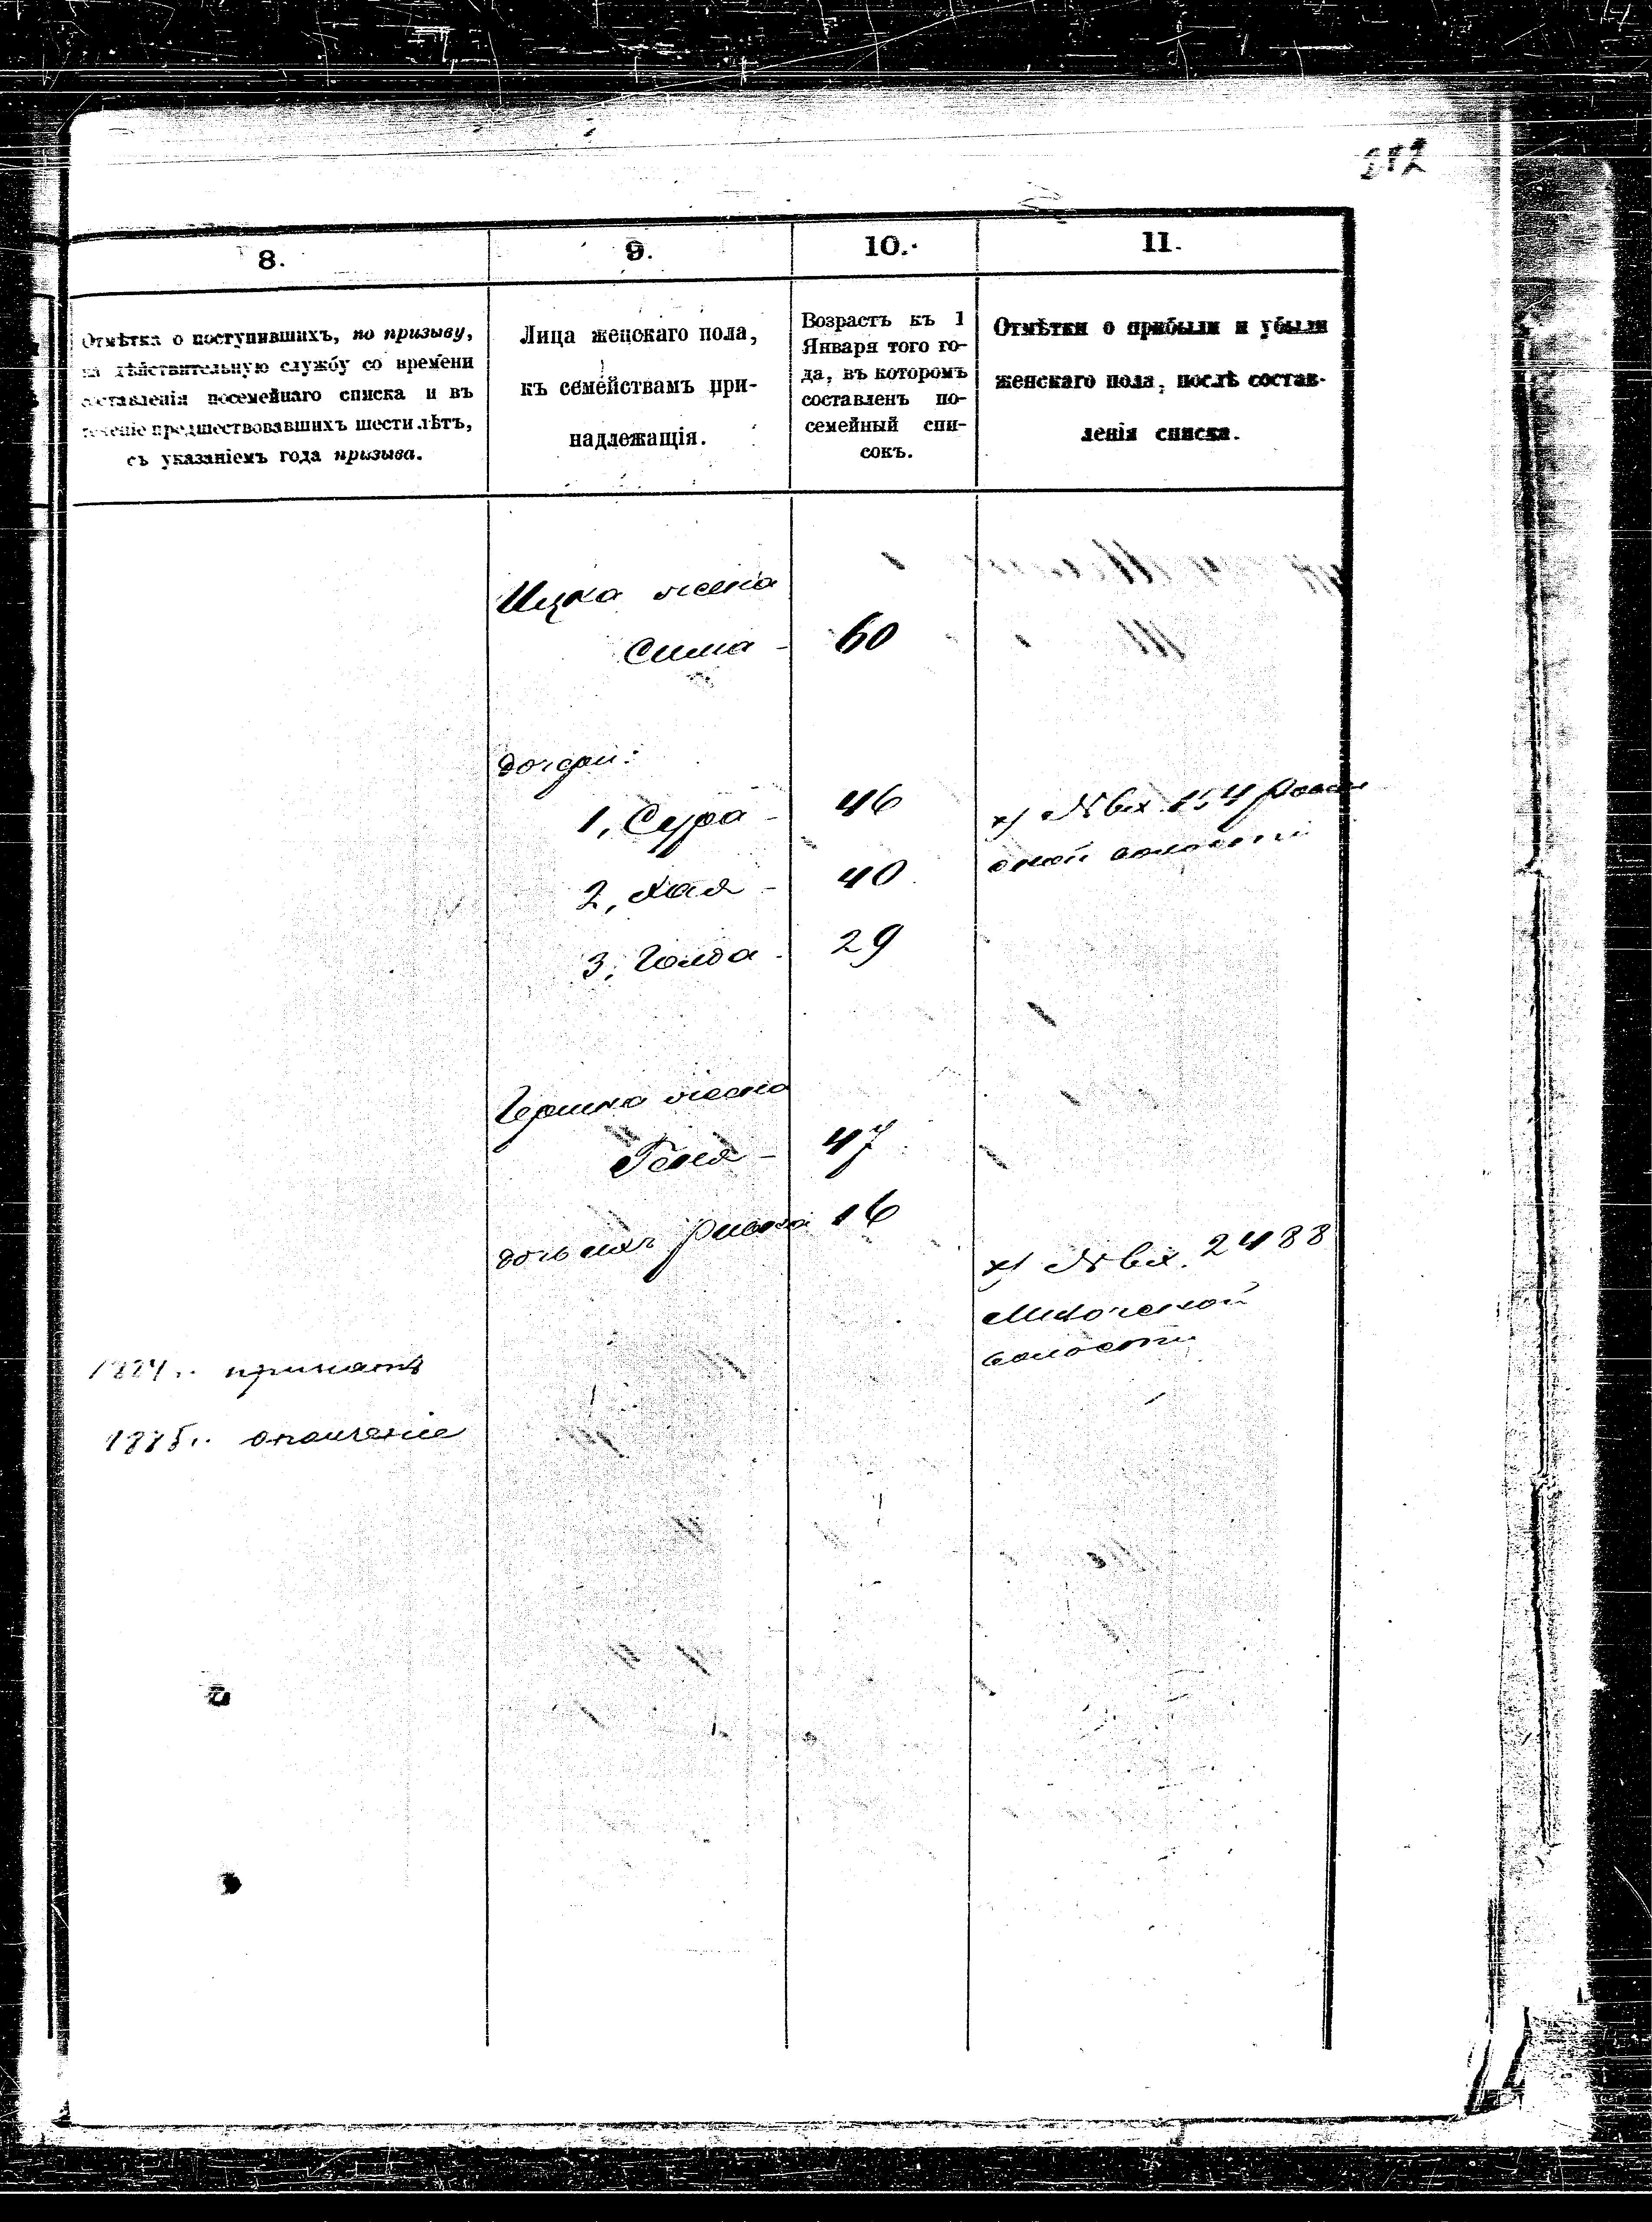 282
8.
9.
10.
11.
Отмѣтка о поступившихъ, по призыву,
на дѣйствительную службу со времени
составленія посемейнаго списка и въ
теченіе предшествовавшихъ шести лѣтъ,
съ указаніемъ года призыва.
Лица женскаго пола,
къ семействамъ при-
надлежащія.
Возрастъ къ 1
Января того го-
да, въ которомъ
составленъ по-
семейный спи-
сокъ.
Отмѣтки о прибыли и убыли
женскаго пола, послѣ состав-
ленія списка.
Ицка жена
Сима - 60
дочери:
1, Сура - 46
х) № вх.
2, Хая - 40
волости
3, Голда - 29
Гершка жена
Геня - 47
дочь ихъ Ривка 16
х) № вх. 2488
волости
1884 г. принятъ
1885 г. ополченіе